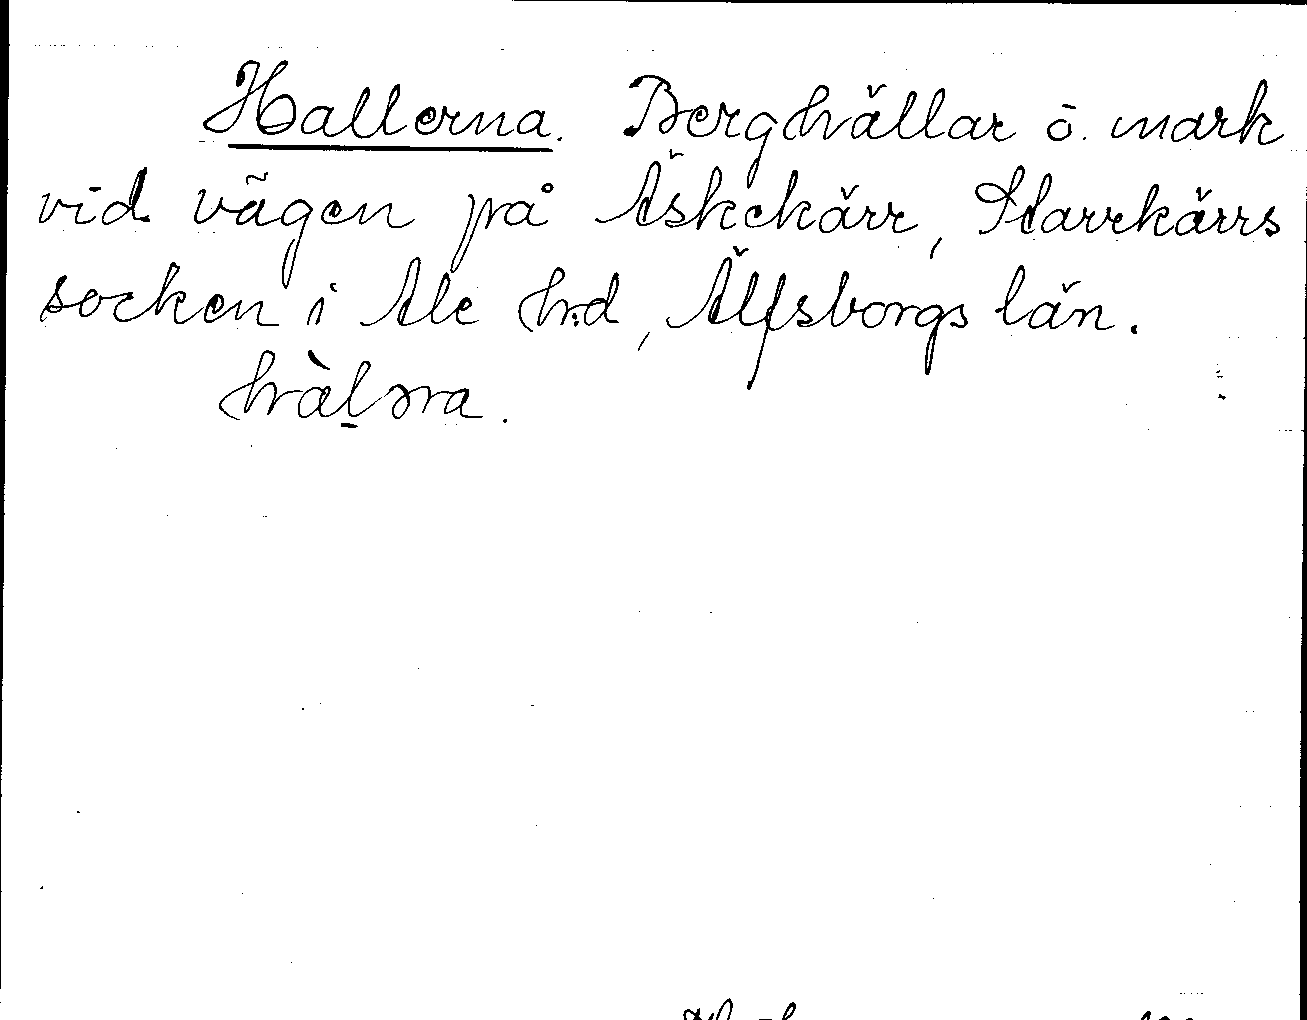 Hallerna. Berghällar ō. mark
vid vägen på Äskekärr, Starrkärrs
socken i Ale hrd, Älfsborgs län.
hàl̠əna.